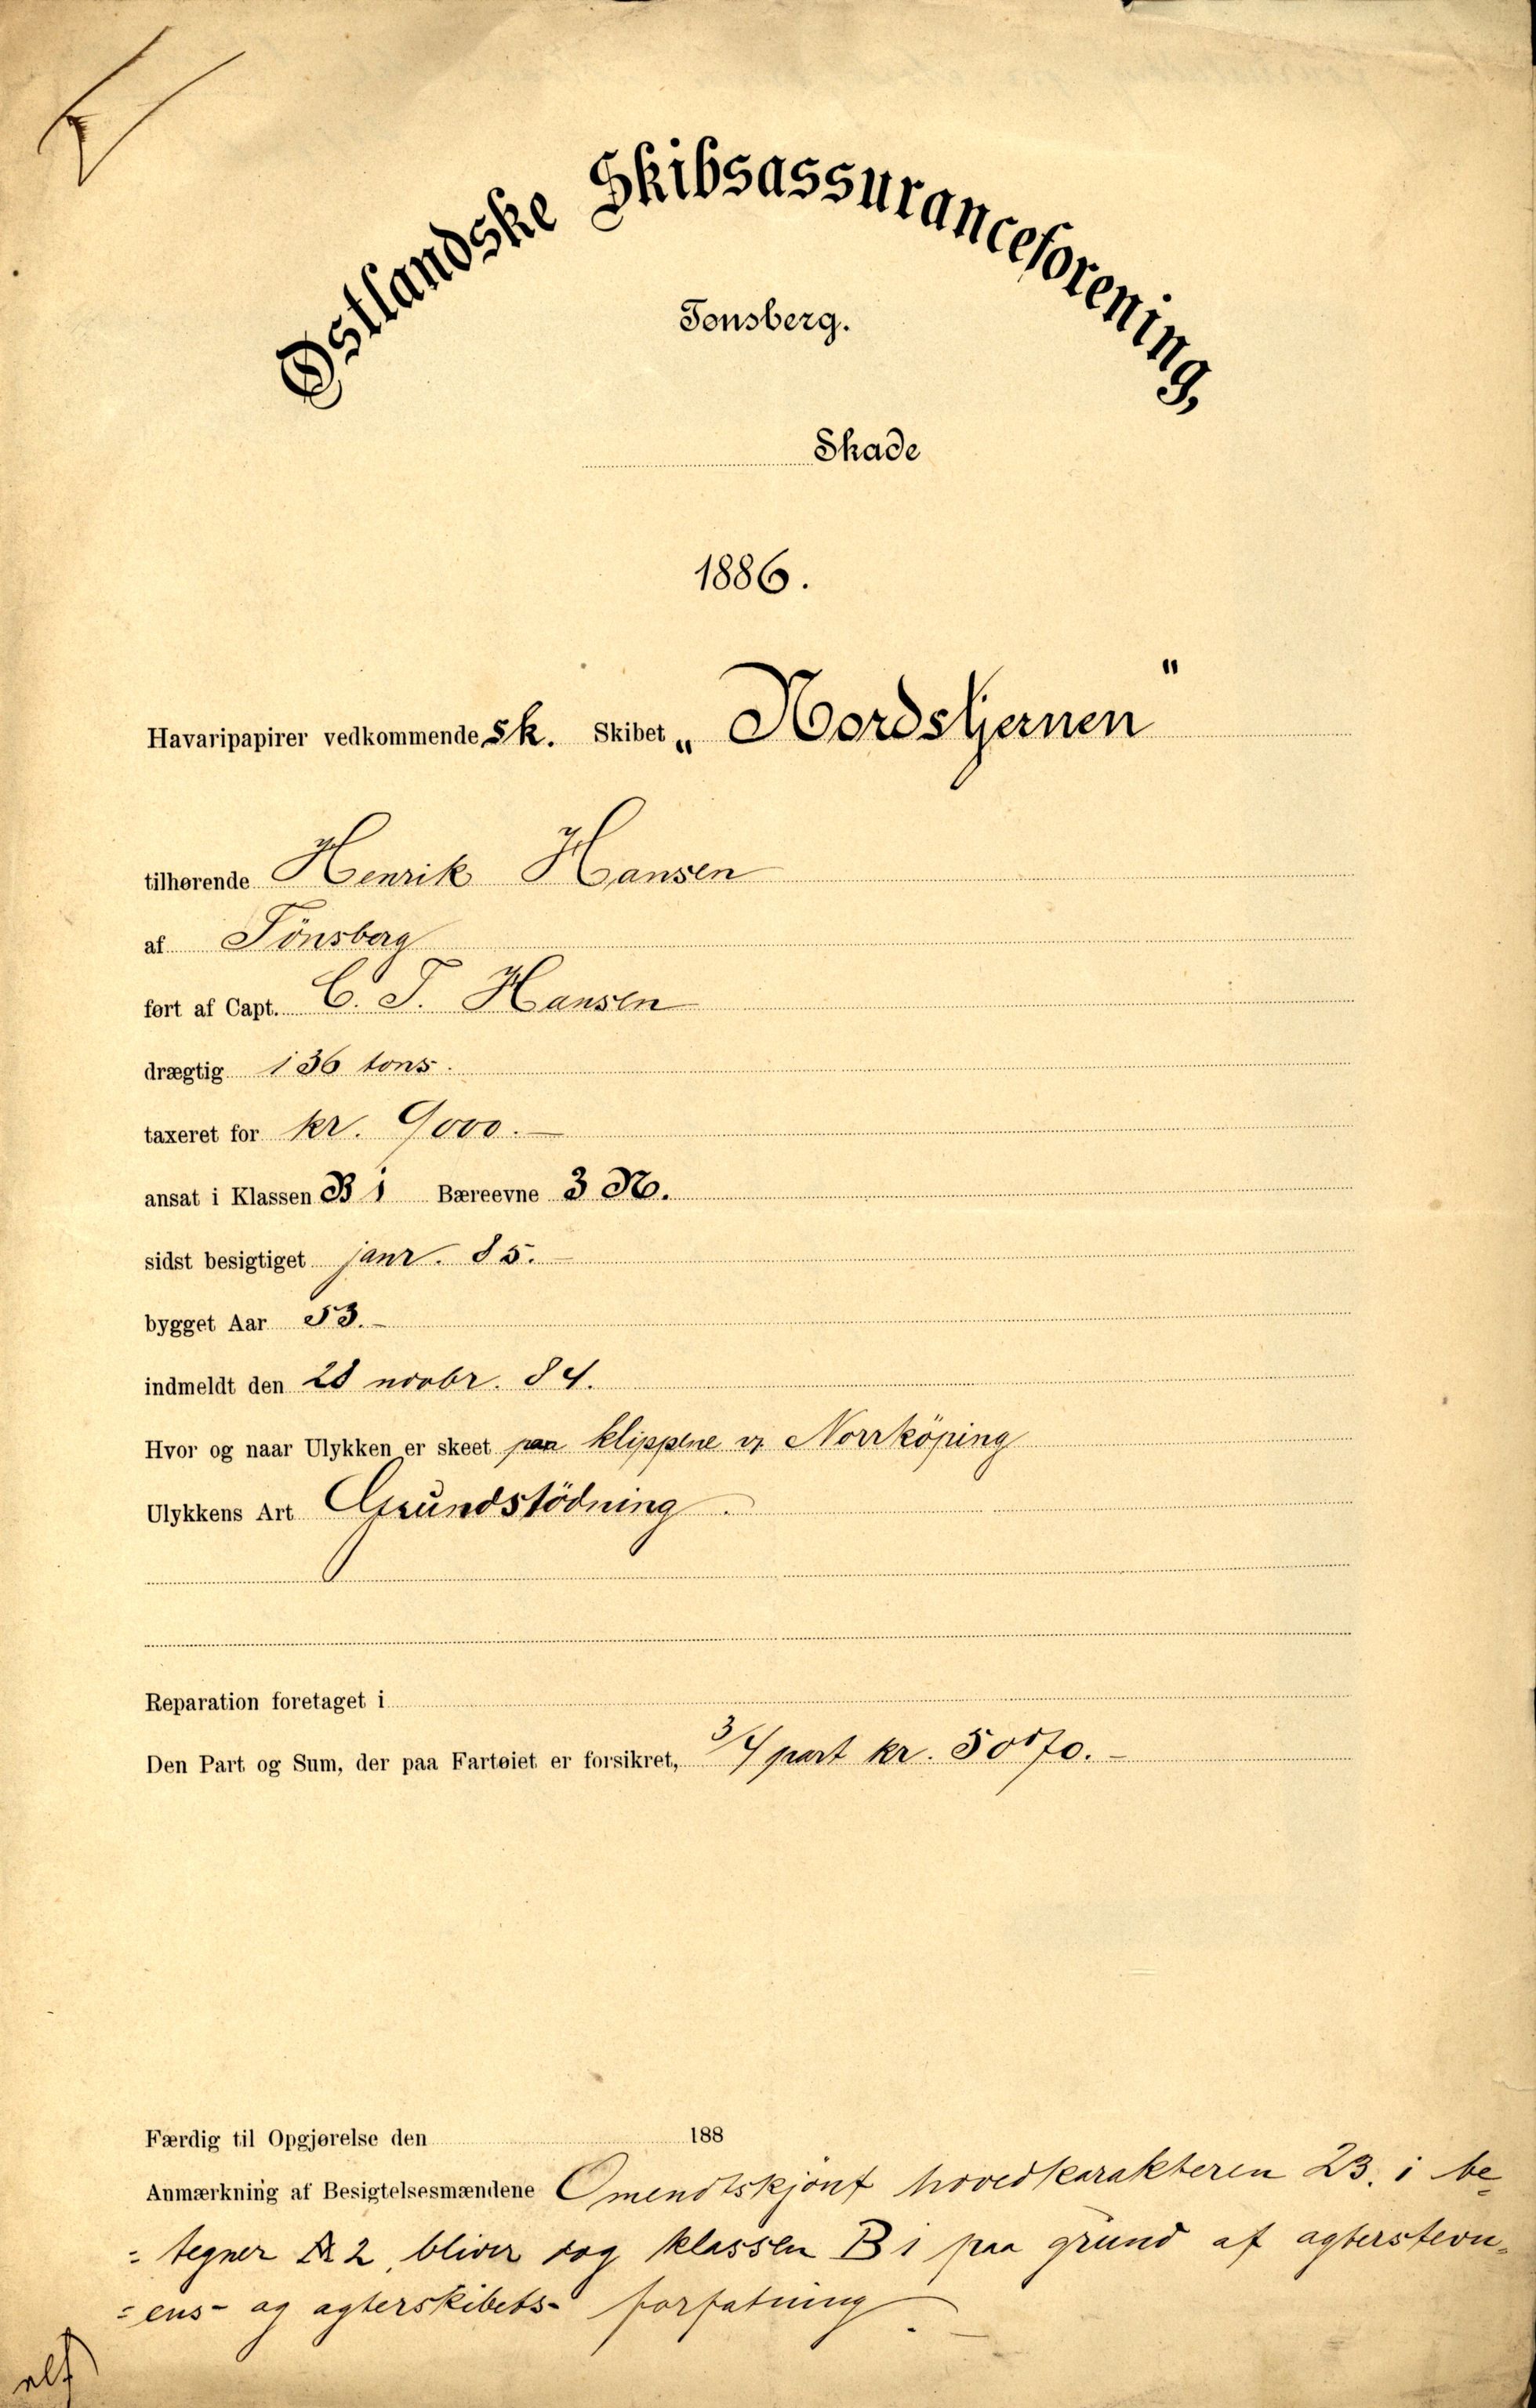 Østlandske Skibsassuranceforening,
Tønsberg.
Skade
1886.
Havaripapirer vedkommende Sk. Skibet „Nordstjernen"
tilhørende Henrik Hansen
af Tönsberg
ført af Capt. C. T. Hansen
drægtig 136 tons.
taxeret for kr. 9000.—
ansat i Klassen B 1 Bæreevne 3 N.
sidst besigtiget janr. 85.—
bygget Aar 53.—
indmeldt den 28 novbr. 84.
Hvor og naar Ulykken er skeet paa klippene v. Norrköping
Ulykkens Art Grundstödning.
Reparation foretaget i
Den Part og Sum, der paa Fartøiet er forsikret, 3/4 part kr. 5070.—
Færdig til Opgjørelse den 188
Anmærkning af Besigtelsesmændene Omendtskjönt hovedkarakteren 23. i be-
= tegner A 2, bliver dog klassen B 1 paa grund af agterstevn-
= ens- og agterskibets- forfatning.